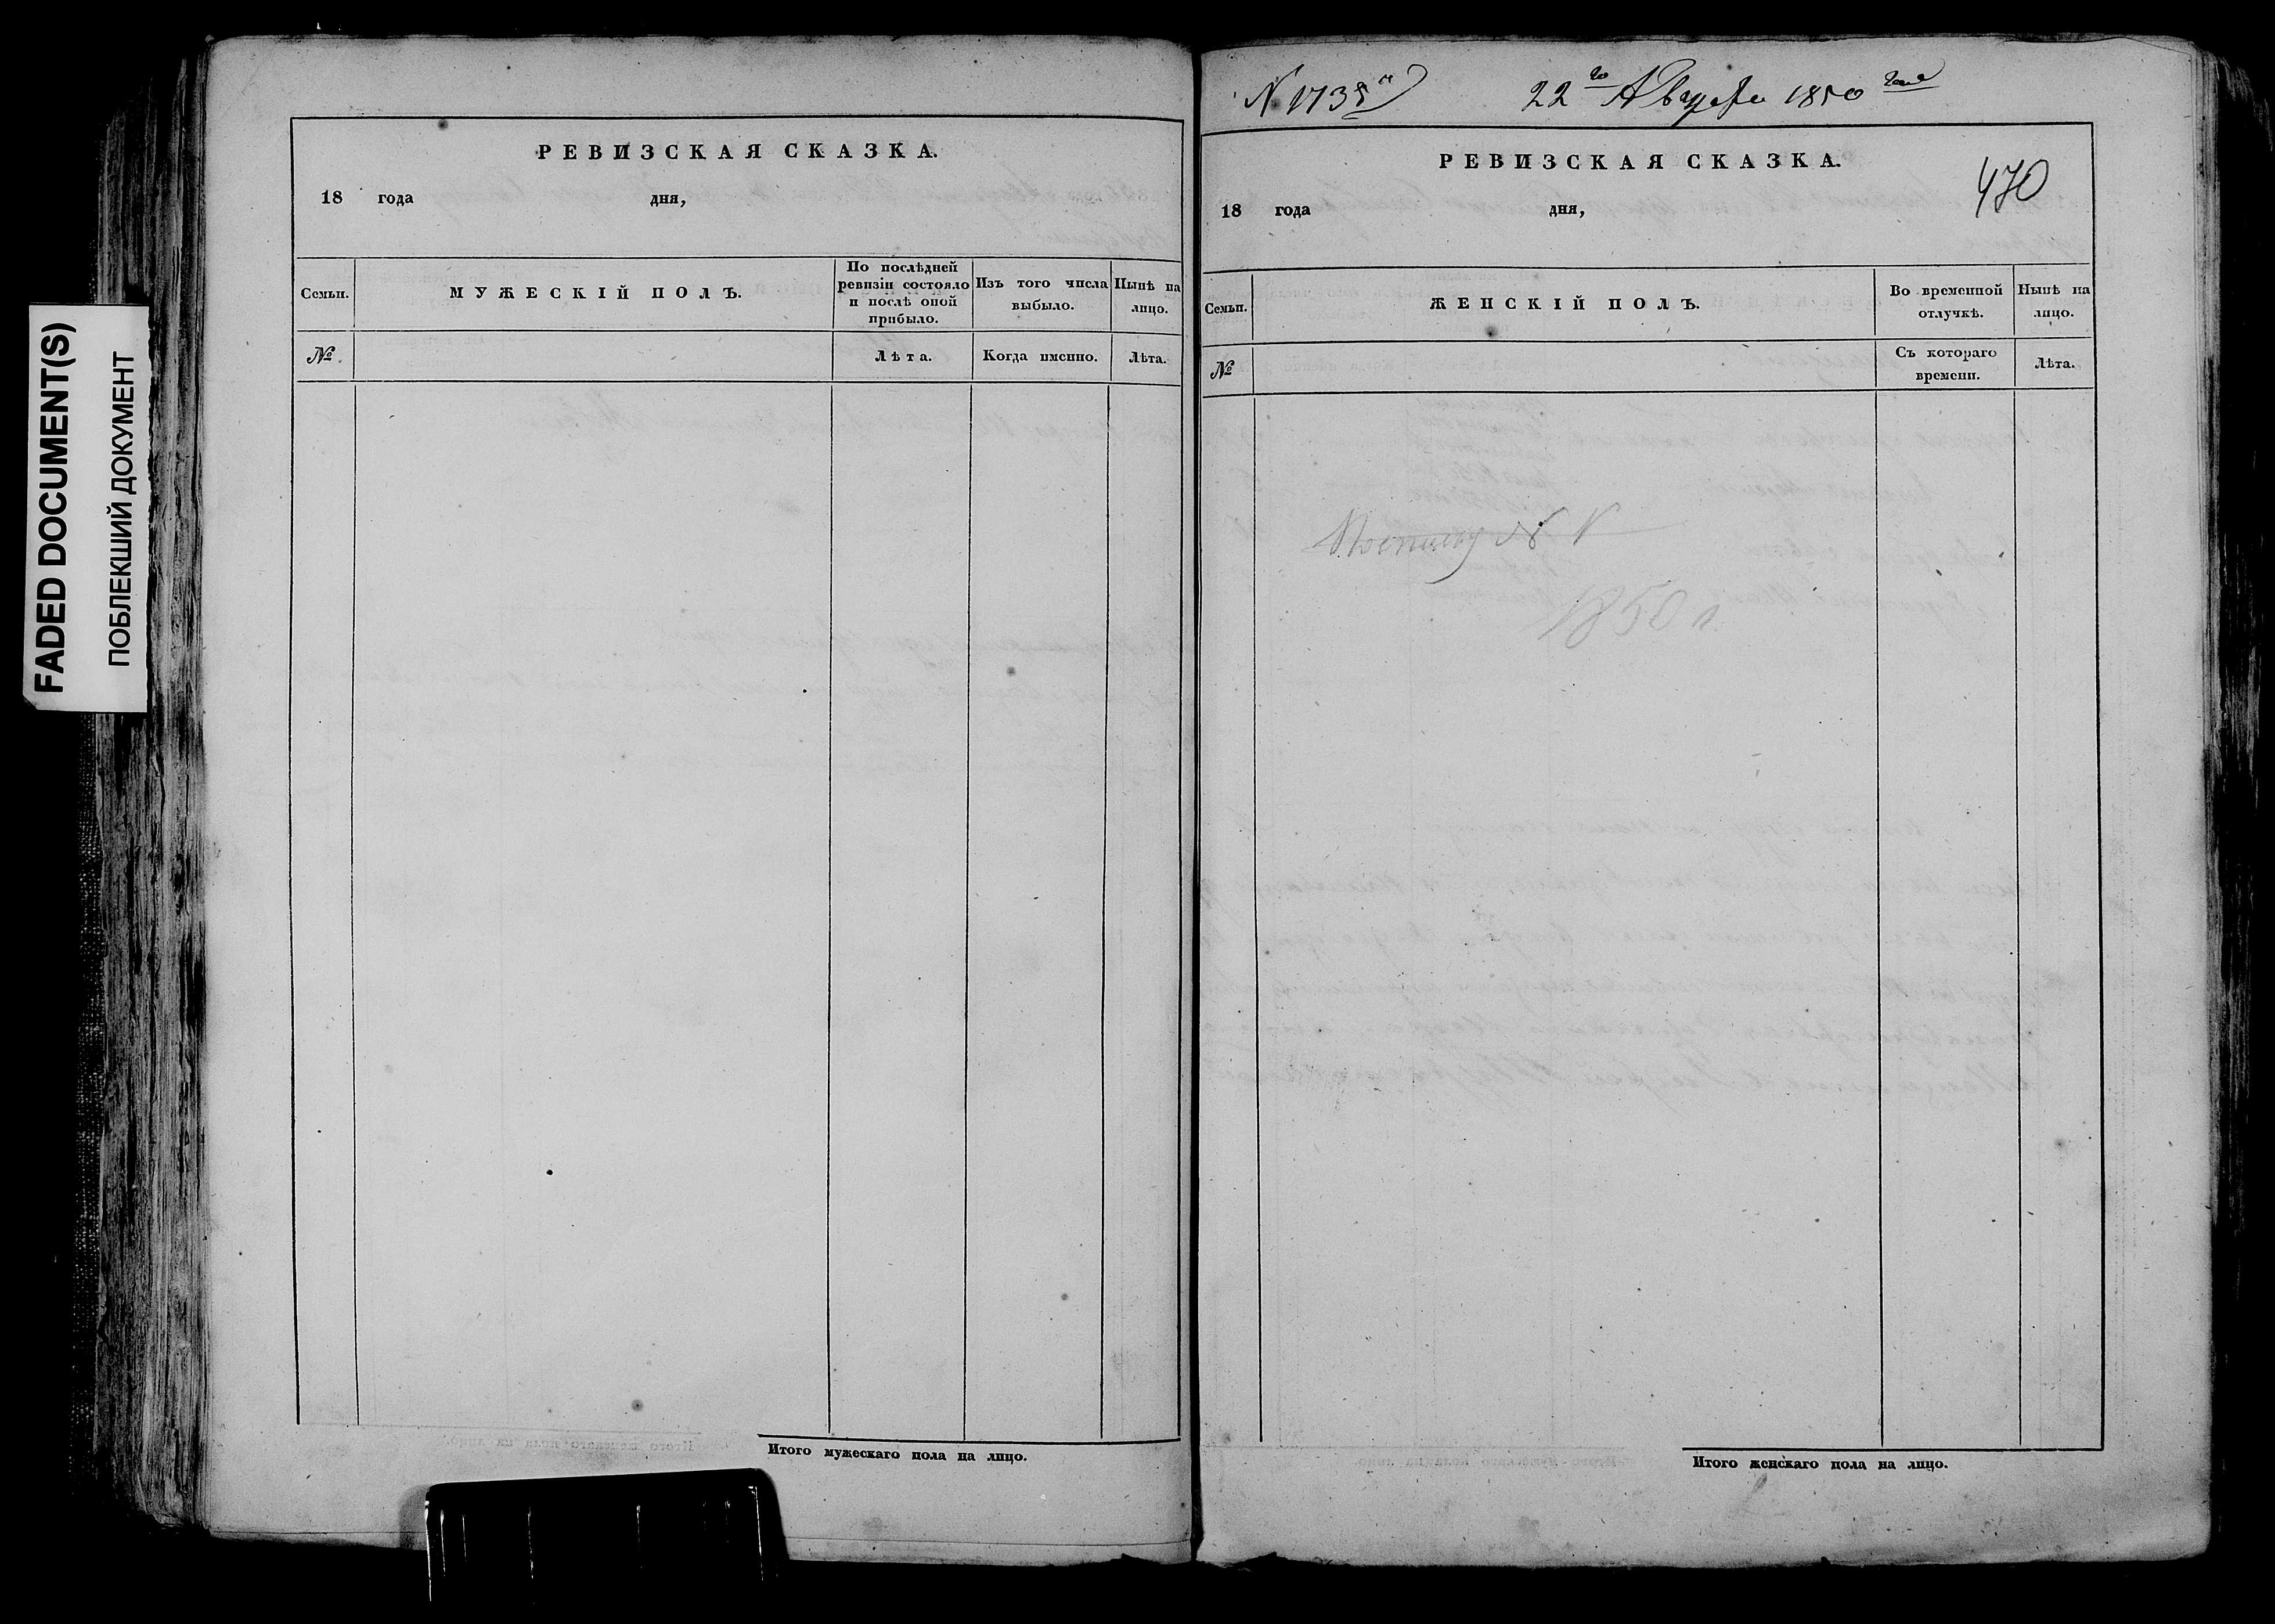 FADED DOCUMENT(S)
ПОБЛЕКШИЙ ДОКУМЕНТ
РЕВИЗСКАЯ СКАЗКА.
18 года дня,
Семьи. МУЖЕСКІЙ ПОЛЪ. По послѣдней ревизіи состояло и послѣ оной прибыло. Изъ того числа выбыло. Нынѣ на лицо.
№ Лѣта. Когда именно. Лѣта.
Итого мужескаго пола на лицо.
22го Августа 1850 года
РЕВИЗСКАЯ СКАЗКА.
470
18 года дня,
Семьи. ЖЕНСКІЙ ПОЛЪ. Во временной отлучкѣ. Нынѣ на лицо.
№ Съ котораго времени. Лѣта.
1850 г
Итого женскаго пола на лицо.